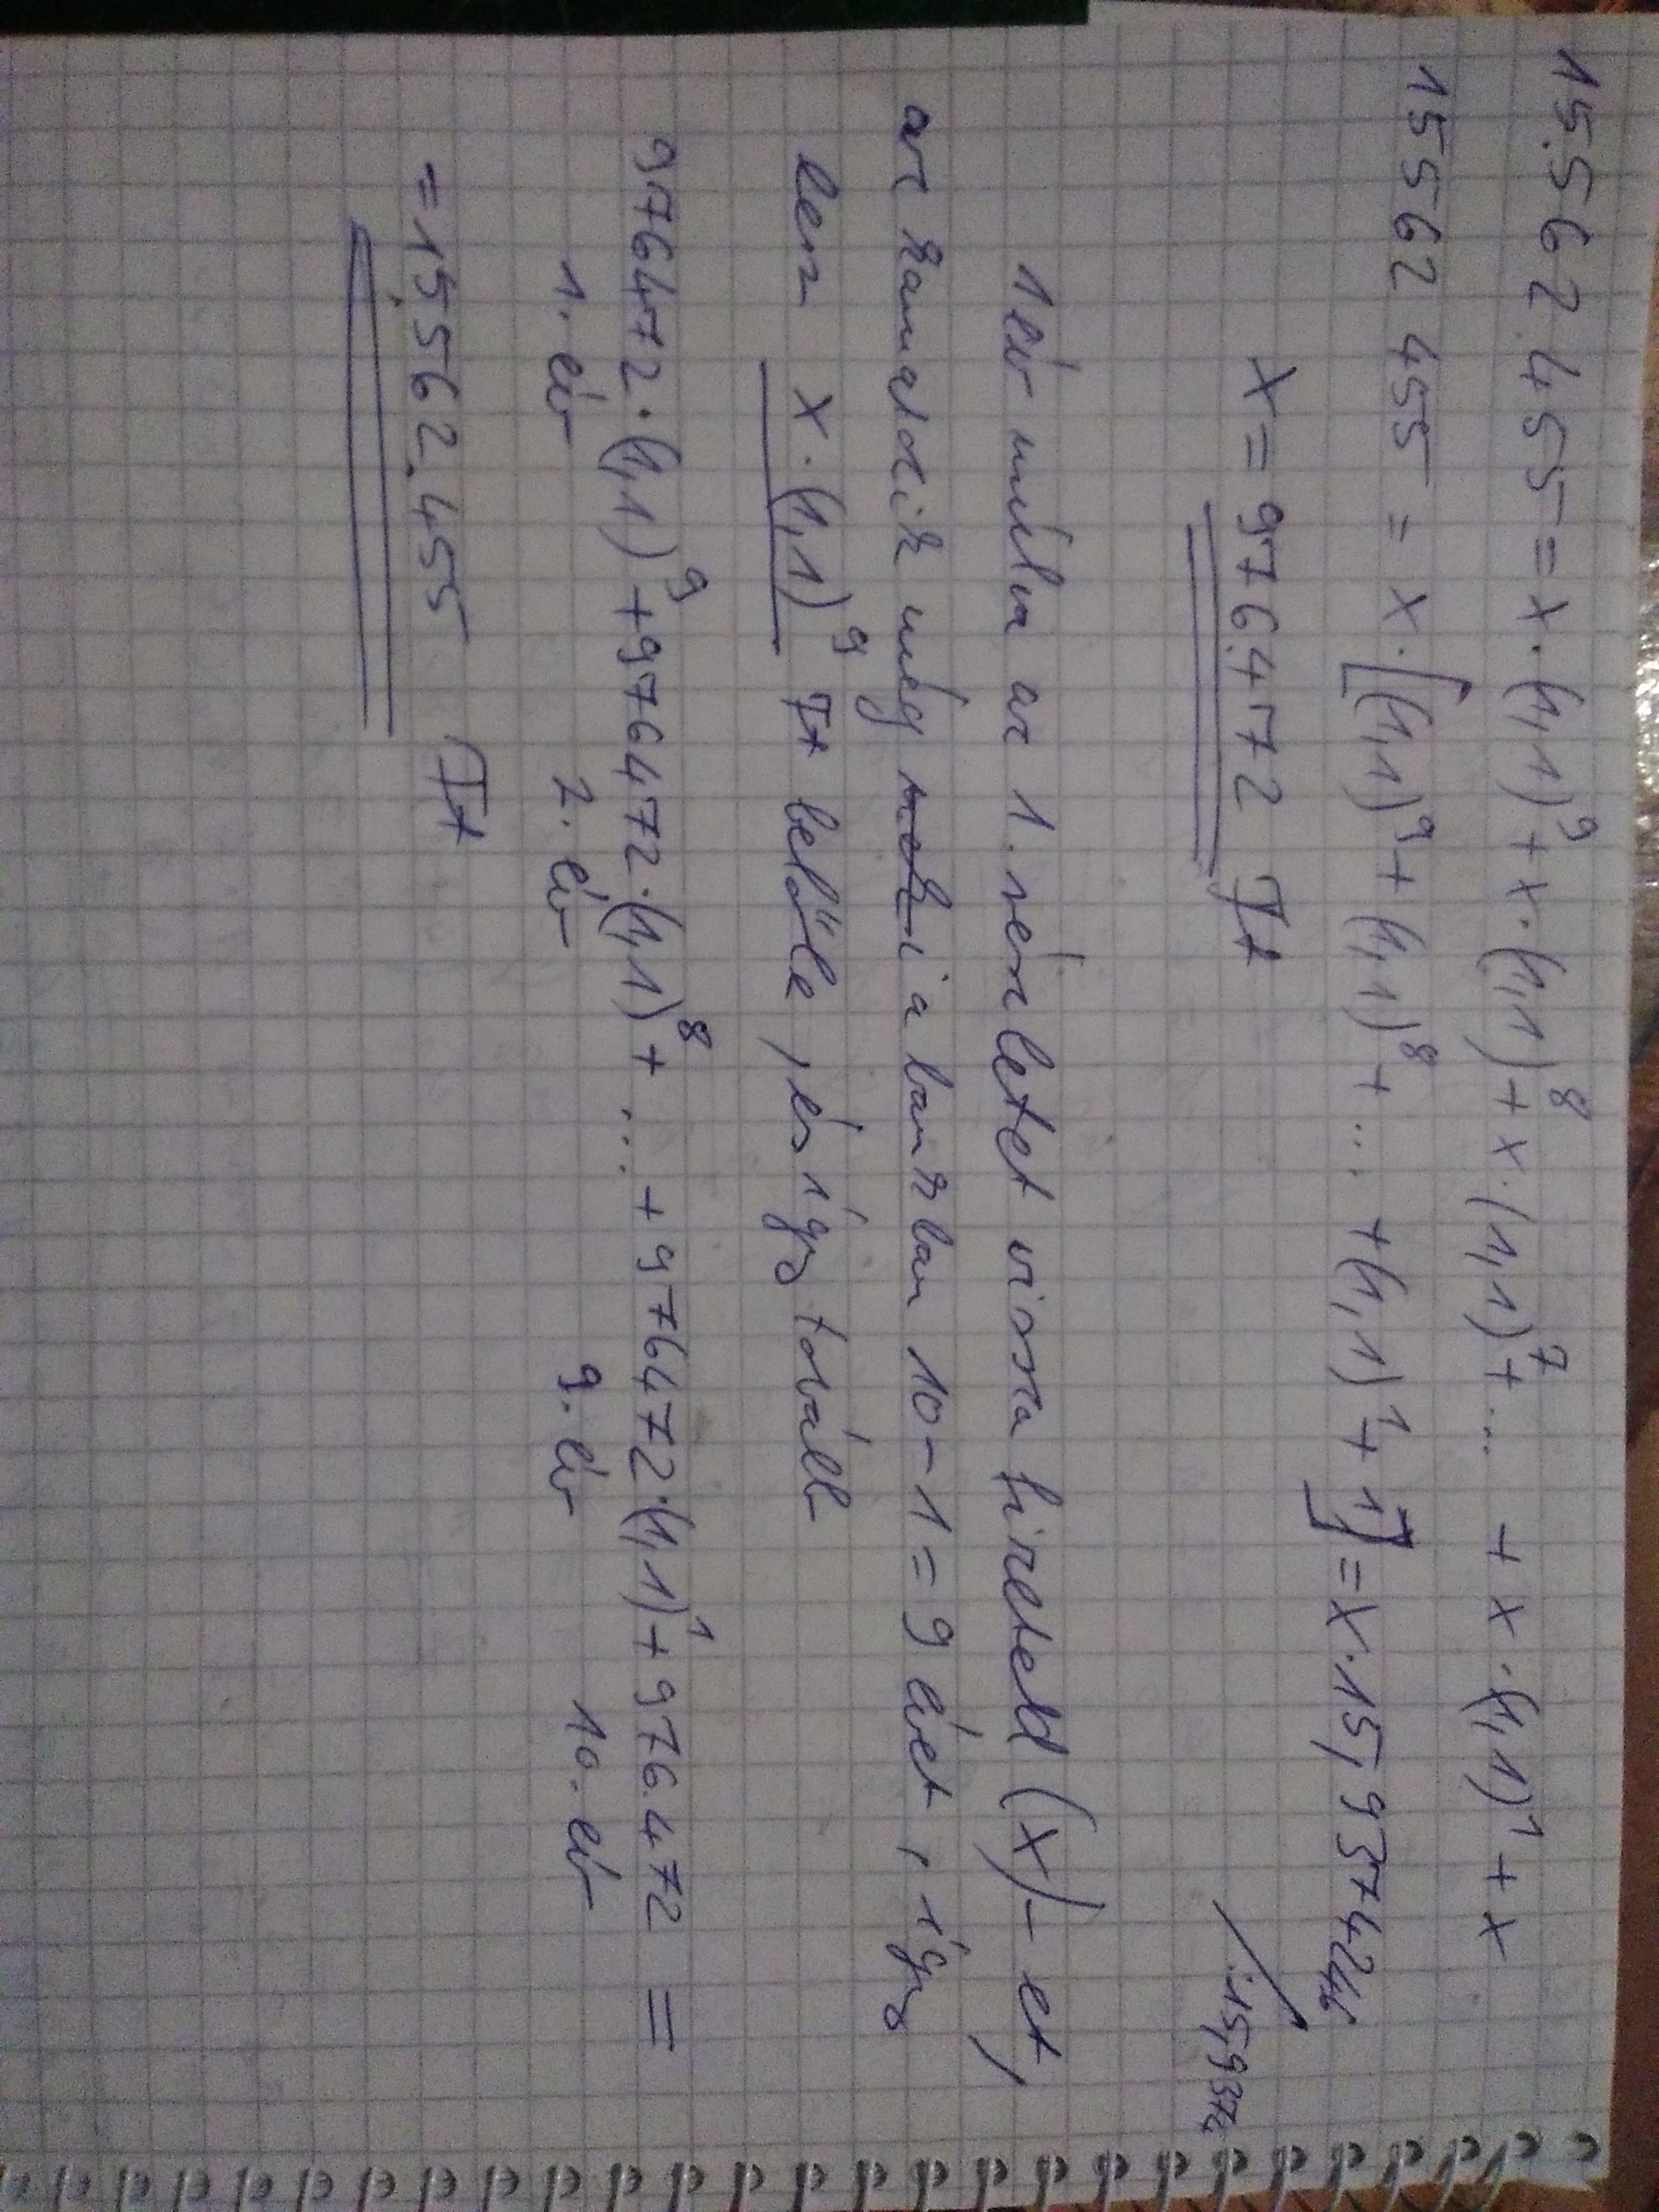 15.562.455 = x·(1,1)⁹ + x·(1,1)⁸ + x·(1,1)⁷ + ... + x·(1,1)¹ + x
15562455 = x·[(1,1)⁹ + (1,1)⁸ + ... + (1,1)¹ + 1] = x·15,9374246
/:15,9374
x = 976.472 Ft
1 év múlva az 1. részletet vissza fizeted (x)-et,
az kamatozik még a bankban 10-1=9 évet, így
lesz x·(1,1)⁹ Ft belőle, és így tovább
976472·(1,1)⁹ + 976472·(1,1)⁸ + ... + 976472·(1,1)¹ + 976.472 =
1. év 2. év 9. év 10. év
= 15.562.455 Ft